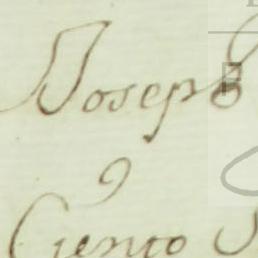 Joseph
Ciento